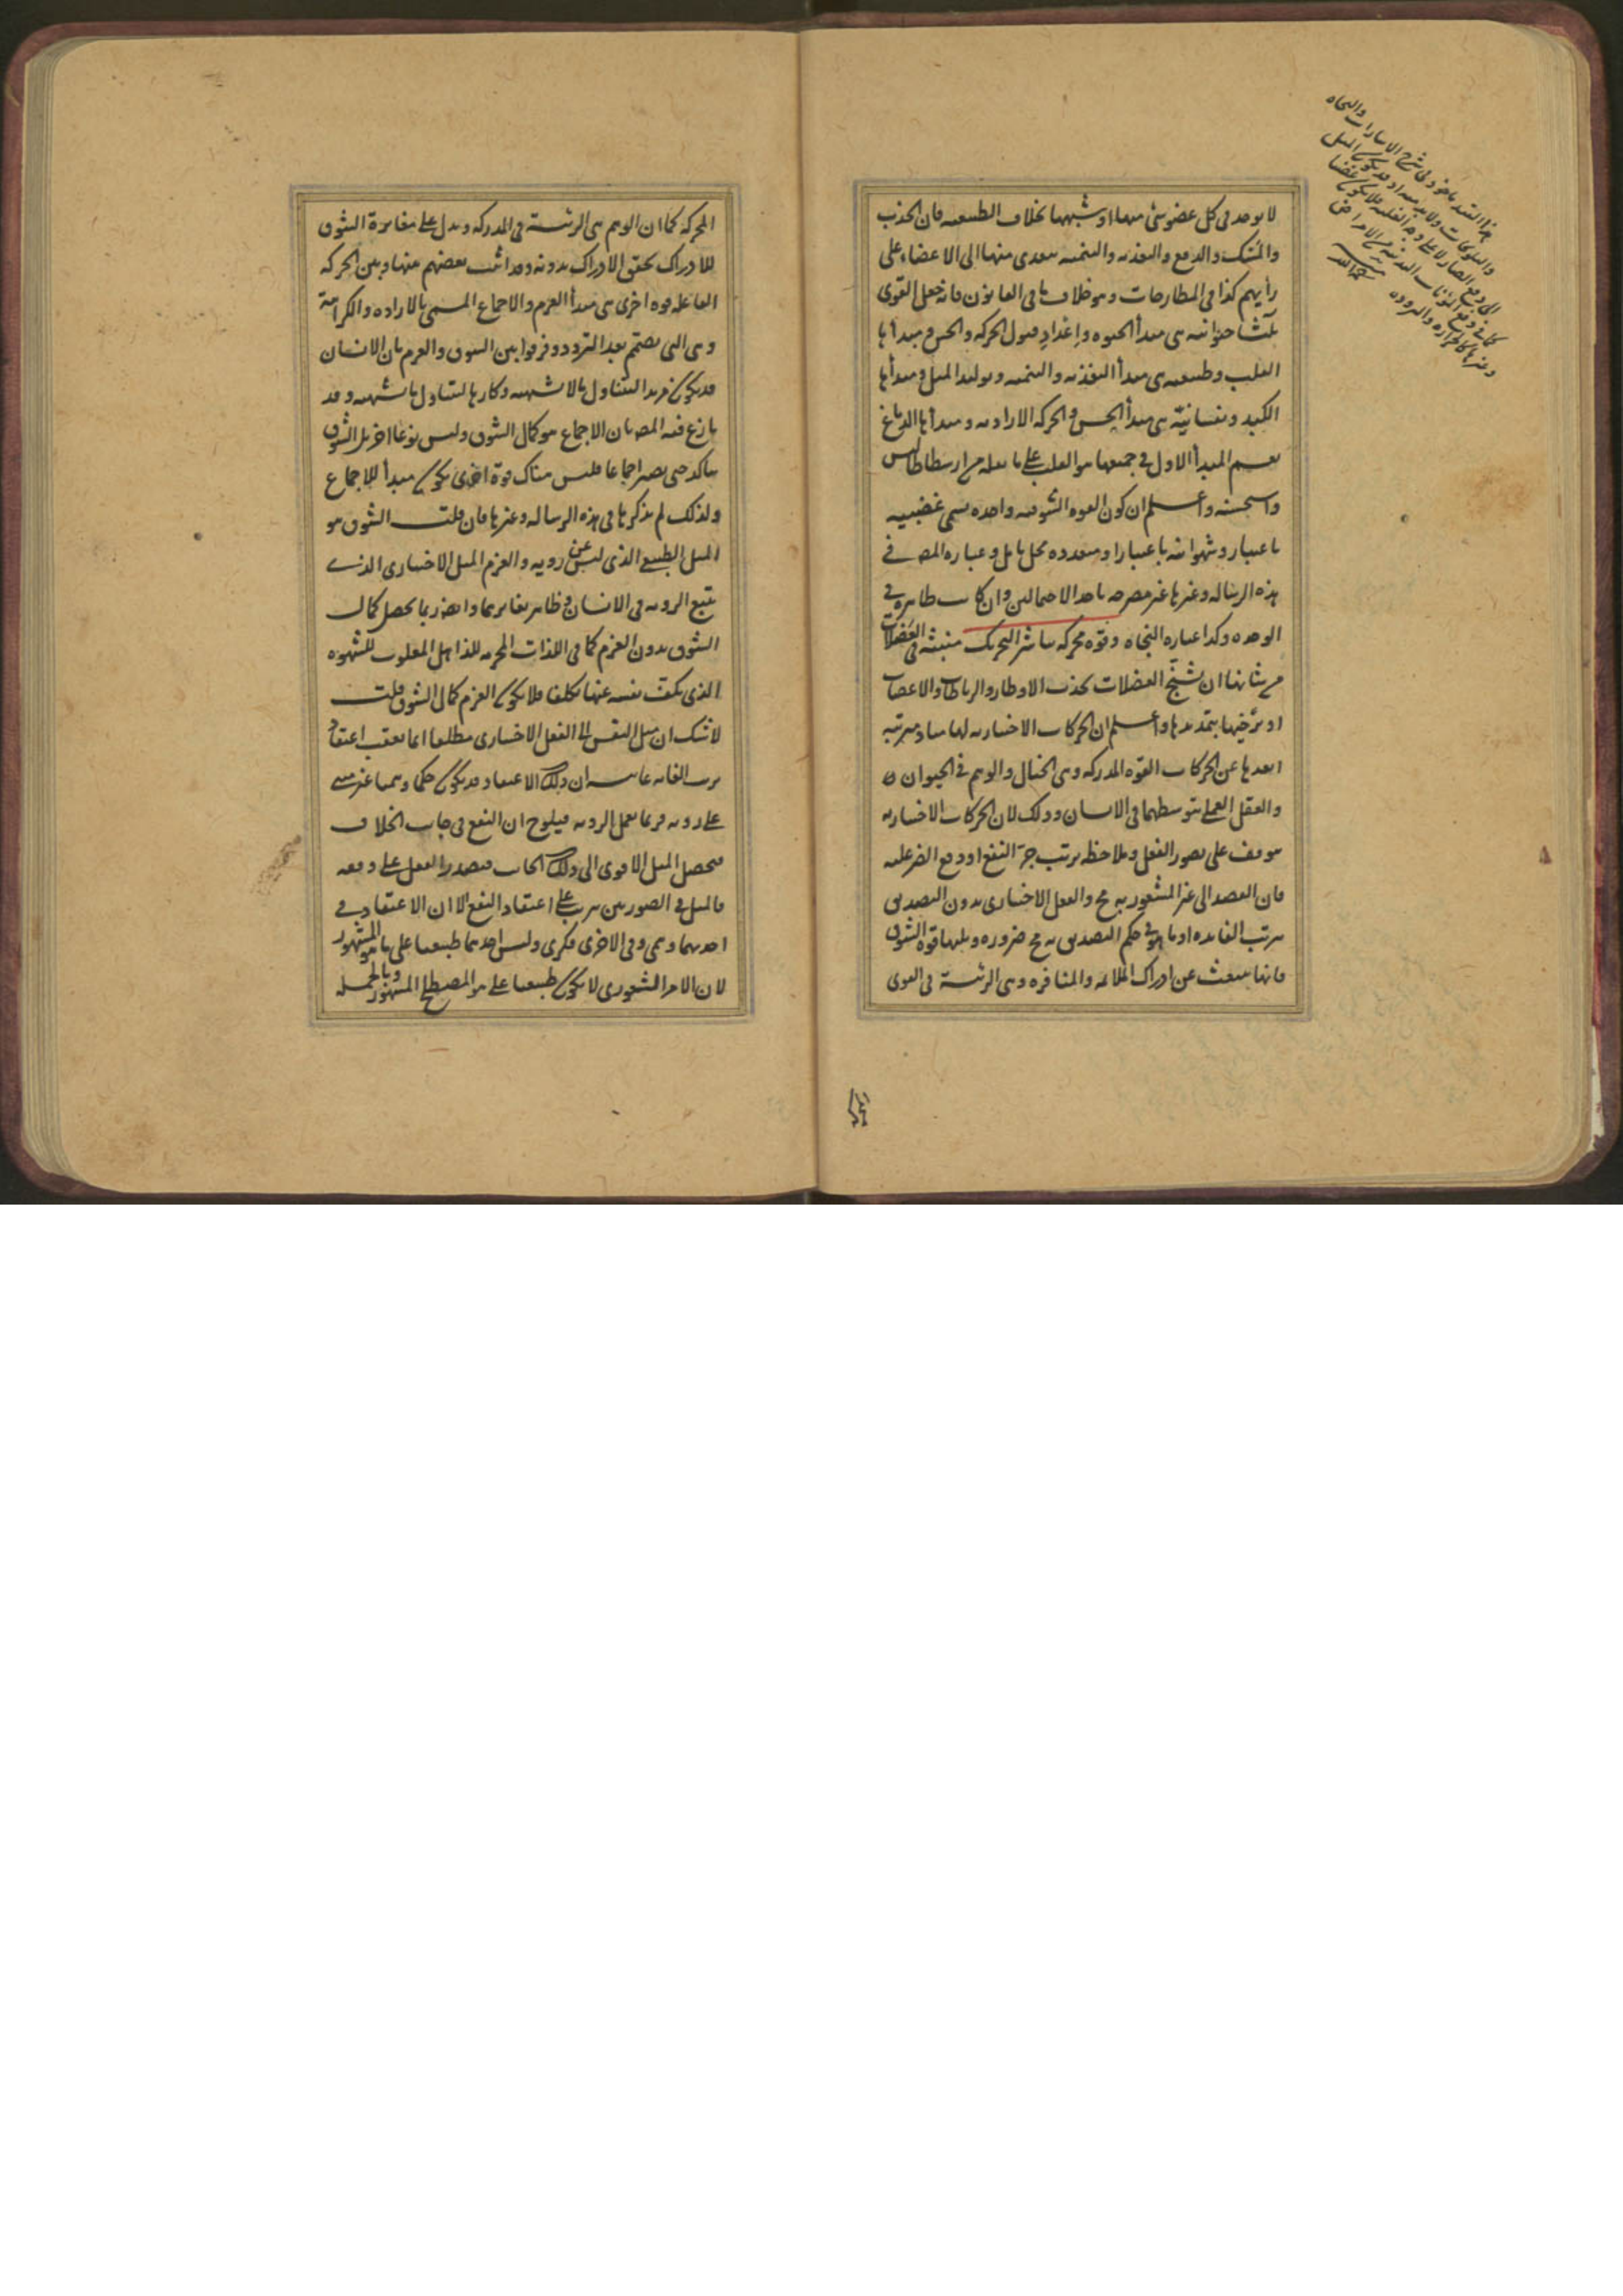 لا يوجد فى كل عضو شئ منها او شبهها بخلاف الطبيعيه فان الجذب
والمسك والدفع والتغذيه والتنميه يتعدى منها الى الاعضاء على
رأيهم كذا فى المطارحات وهو خلاف ما فى القانون فانه جعل القوى
ثلثا حيوانيه هى مبدأ الحيوه واعداد قبول الحركه والحس ومبدأها
القلب وطبيعيه هى مبدأ التغذيه والتنميه وتوليد المثل ومبدأها
الكبد ونفسانيّة هى مبدأ الحس والحركه الاراديه ومبدأها الدماغ
نعم المبدأ الاول فى جميعها هو القلب على ما نقله من ارسطاطاليس
واستحسنه واعلم ان كون القوه الشوقيه واحده تسمى غضبيه
باعتبار وشهوانيه باعتبار او متعدده محل تامل وعباره المص فى
هذه الرساله وغيرها غير مصرحه باحد الاحتمالين وان كانت ظاهره فى
الوحده وكذا عباره النجاه وقوه محركه تباشر التحريك منبثه فى العضلات
من شانها ان تشنّج العضلات بجذب الاوطار والرباطات والاعصاب
او ترخيها بتمديدها واعلم ان الحركات الاختياريه لها مباد مترتبه
ابعدها عن الحركات القوه المدركه وهى الخيال والوهم فى الحيوان
والعقل العملى بتوسطهما فى الانسان وذلك لان الحركات الاختياريه
موقف على تصور الفعل وملاحظه ترتب جر النفع او دفع الضر عليه
فان القصد الى غير المشعور به مح والفعل الاختيارى بدون التصديق
بترتب الفايده او ما هو فى حكم التصديق به مح ضروره ويليها قوه الشوق
فانها تنبعث عن ادراك الملائمه والمنافره وهى الرئيسة فى القوى
هذا القيد ماخوذ فى شرح الاشارات والنجاه
والتلويحات ولابد منه اذ قد يكون الميل
الى دفع الضار لا على وجه الغلبه فلا يكون غضبا
كما فى دفع
وغيرها كالحراره والبروده
المحركه كما ان الوهم هى الرئيسة فى المدركه ويدل على مغايرة الشوق
للادراك تحقق الادراك بدونه وقد اثبت بعضهم منها وبين الحركه
الفاعله قوه اخرى هى مبدأ العزم والاجماع المسمى بالاراده والكراهة
وهى التى تصمم بعد التردد وفرقوا بين الشوق والعزم بان الانسان
قد يكون مريد التناول ما لا شتهيه وكارها لتناول ما يشتهيه وقد
نازع فيه المص بان الاجماع هو كمال الشوق وليس نوعا اخر بل الشوق
يتاكد حتى يصير اجماعا فليس هناك قوة اخرى يكون مبدأ للاجماع
ولذلك لم يذكرها فى هذه الرساله وغيرها فان قلت الشوق هو
الميل الطبيعى الذى ليس عن رويه والعزم الميل الاختيارى الذى
يتبع الرويه فى الانسان فظاهر تغايرهما وايضا ربما يحصل كمال
الشوق بدون العزم كما فى اللذات المحرمه للذاهل المغلوب للشهوه
الذى يكف نفسه عنها تكلفا فلا يكون العزم كمال الشوق قلت
لا شك ان ميل النفس الى الفعل الاختيارى مطلقا انما يعقب اعتقاد
ترتب الغايه غايته ان ذلك الاعتقاد قد يكون حكما وهميا غير مبنى
على رويه فربما يعمل الرويه فيلوح ان النفع فى جانب الخلاف
فيحصل الميل الاقوى الى ذلك الجانب فيصدر الفعل على وفقه
فالميل فى الصورتين يترتب على اعتقاد النفع الا ان الاعتقاد فى
احديهما وهمى وفى الاخرى فكرى وليس احدهما طبيعيا على ما هو المشهور
لان الامر الشعورى لا يكون طبيعيا على هو المصطلح المشهور وبالجمله